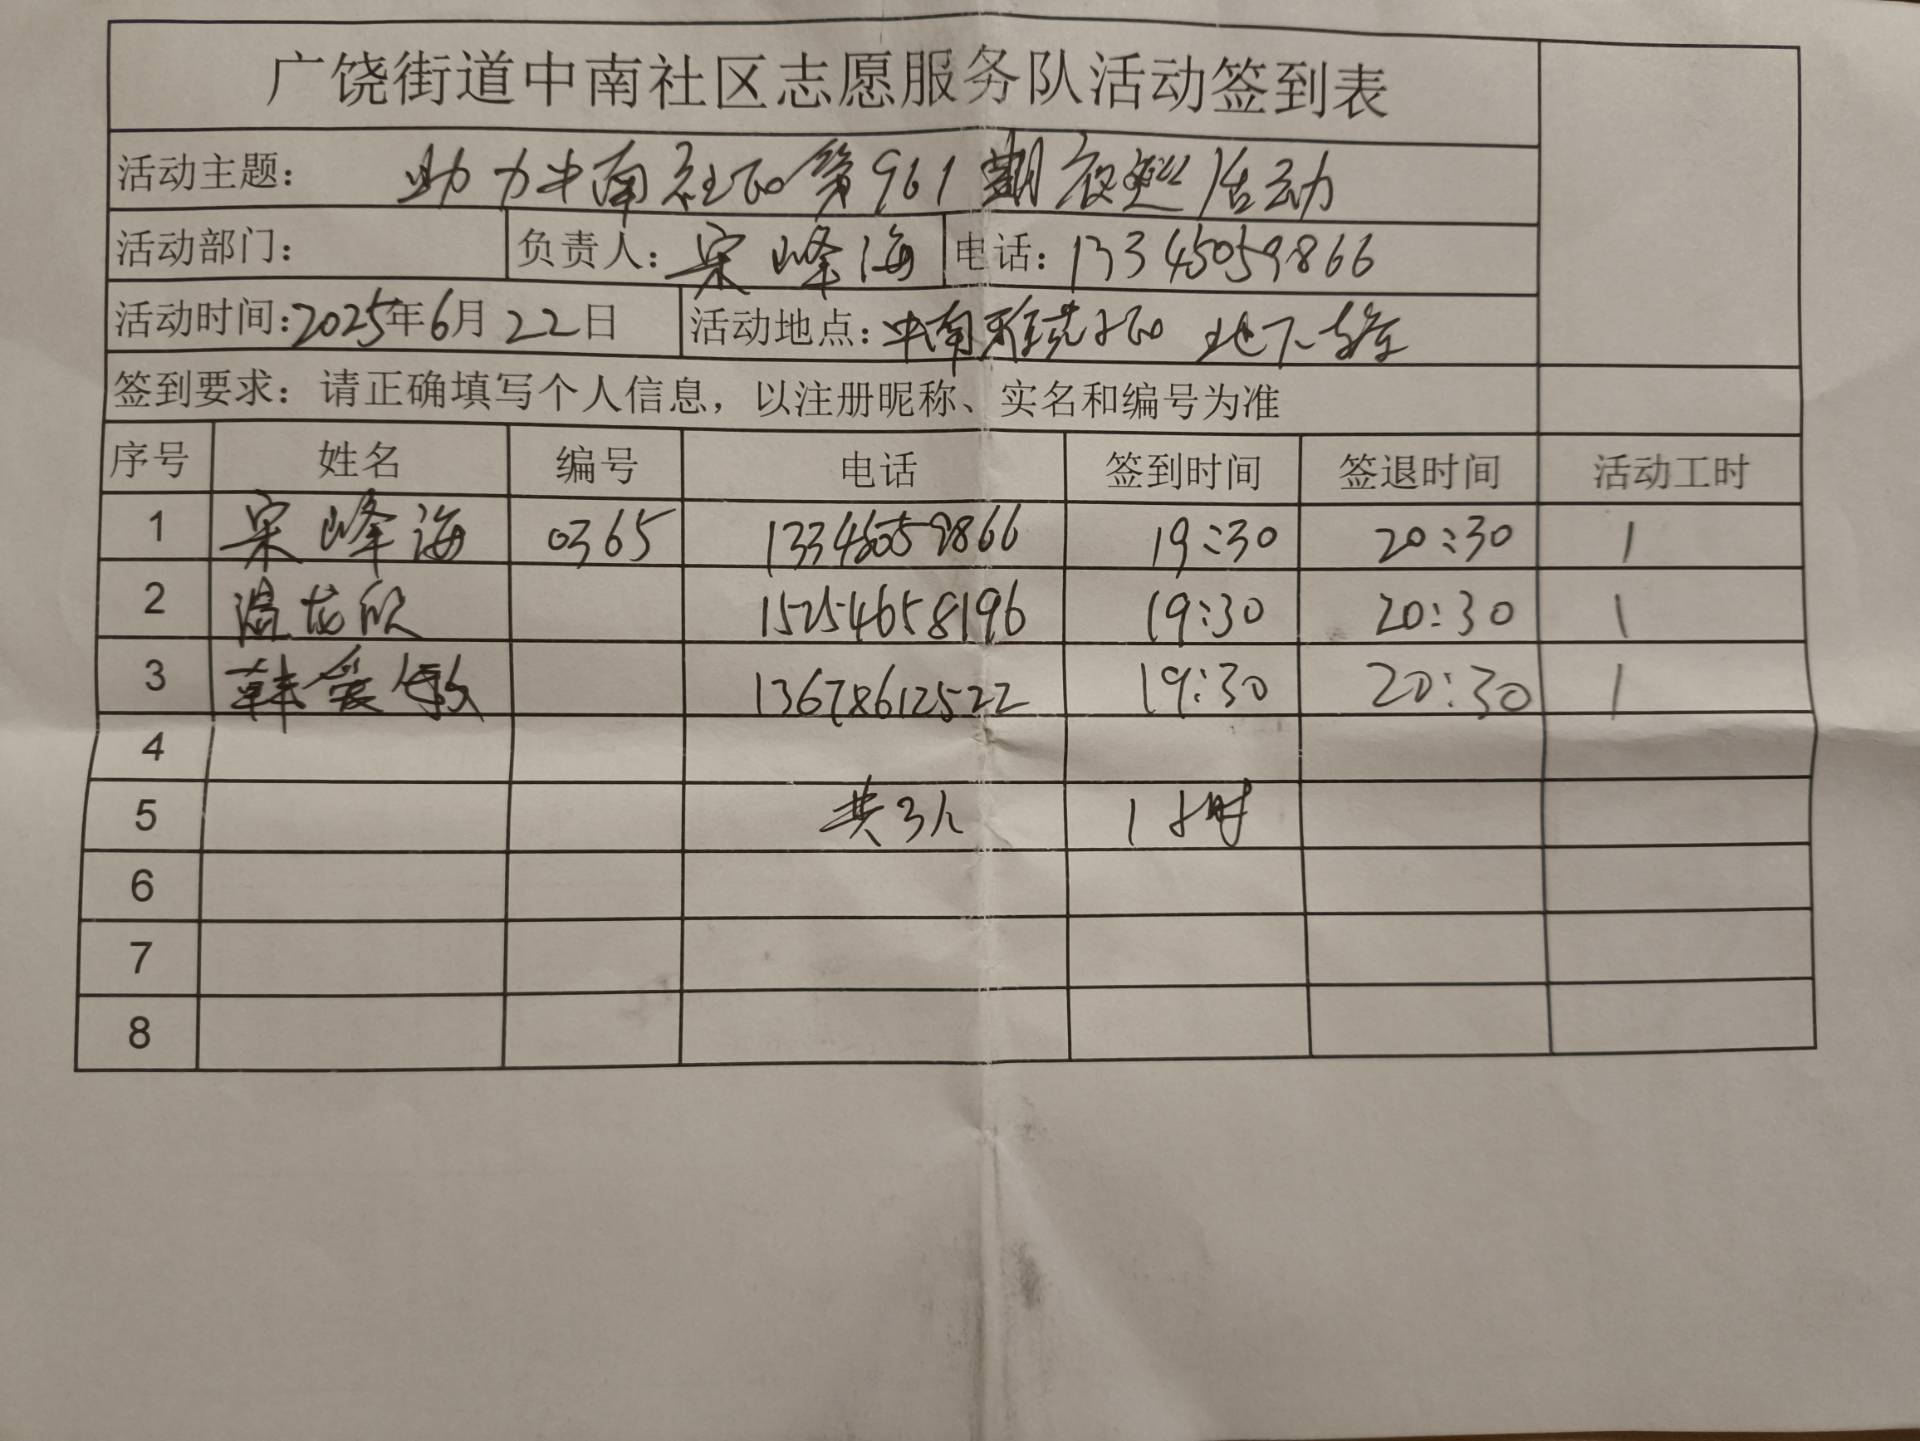 广饶街道中南社区志愿服务队活动签到表
活动主题： 助力中南社区第961期夜巡活动
活动部门： 负责人：宋峰海 电话：13345059866
活动时间：2025年6月22日 活动地点：中南雅苑小区 地下车库
签到要求：请正确填写个人信息，以注册昵称、实名和编号为准
序号 姓名 编号 电话 签到时间 签退时间 活动工时
1 宋峰海 0365 13345059866 19:30 20:30 1
2 温龙欣 15254658196 19:30 20:30 1
3 韩爱敏 13678612522 19:30 20:30 1
4
5 共3人 1小时
6
7
8